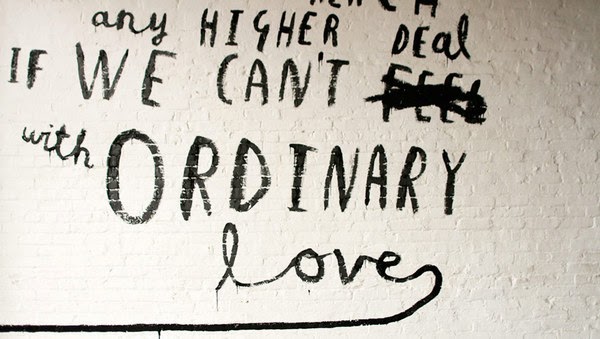 any HIGHER DEal
IF WE CAN'T FEEL
with ORDINARY
love